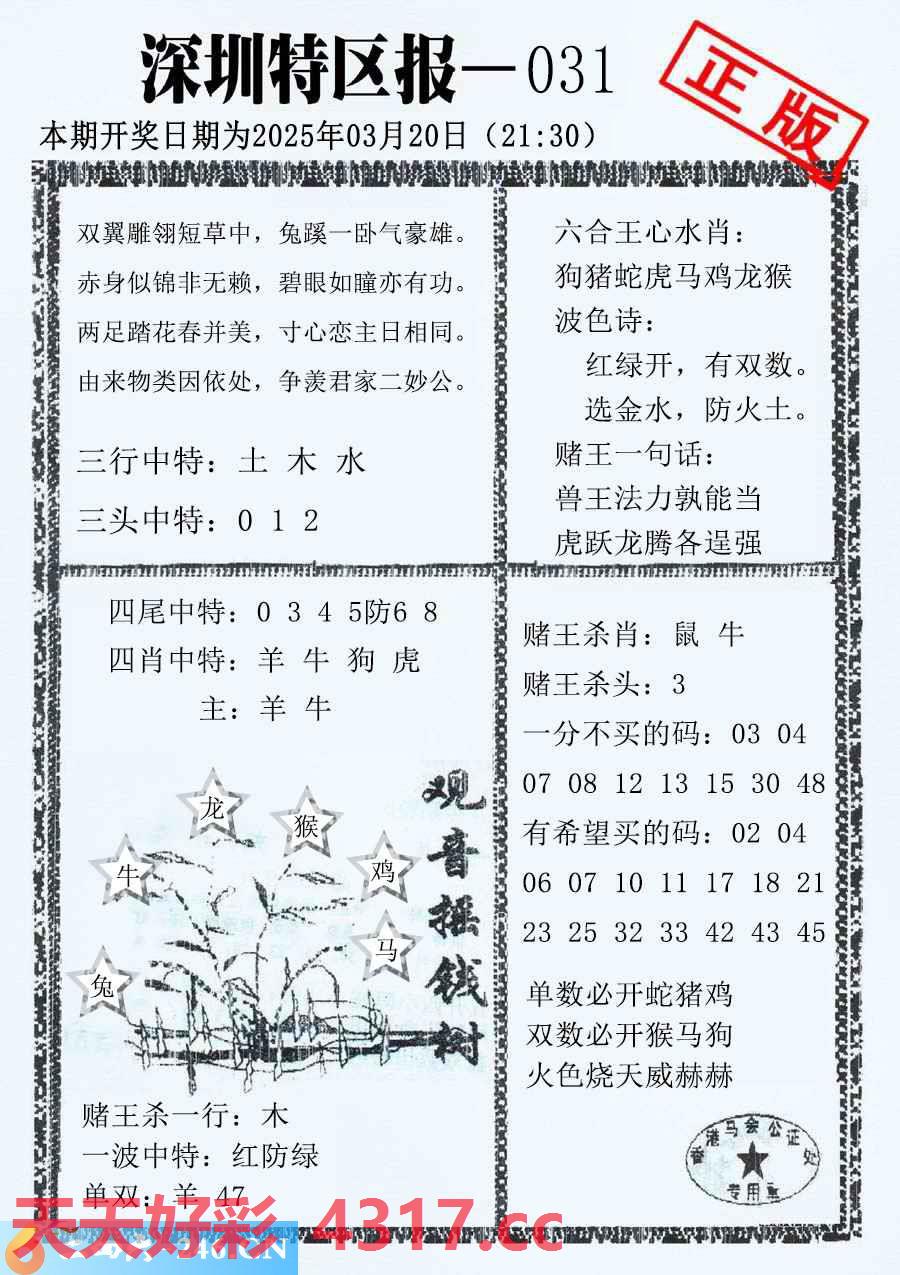 深圳特区报—031
正版
本期开奖日期为2025年03月20日（21:30）
双翼雕翎短草中，兔蹊一卧气豪雄。
赤身似锦非无赖，碧眼如瞳亦有功。
两足踏花春并美，寸心恋主日相同。
由来物类因依处，争羡君家二妙公。
三行中特：土 木 水
三头中特：0 1 2
六合王心水肖：
狗猪蛇虎马鸡龙猴
波色诗：
红绿开，有双数。
选金水，防火土。
赌王一句话：
兽王法力孰能当
虎跃龙腾各逞强
四尾中特：0 3 4 5防6 8
四肖中特：羊 牛 狗 虎
主：羊 牛
龙
猴
牛
鸡
马
兔
观音摇钱树
赌王杀一行：木
一波中特：红防绿
单双：羊 47
赌王杀肖：鼠 牛
赌王杀头：3
一分不买的码：03 04
07 08 12 13 15 30 48
有希望买的码：02 04
06 07 10 11 17 18 21
23 25 32 33 42 43 45
单数必开蛇猪鸡
双数必开猴马狗
火色烧天威赫赫
香港马会公证处
专用章
天天好彩 4317.cc